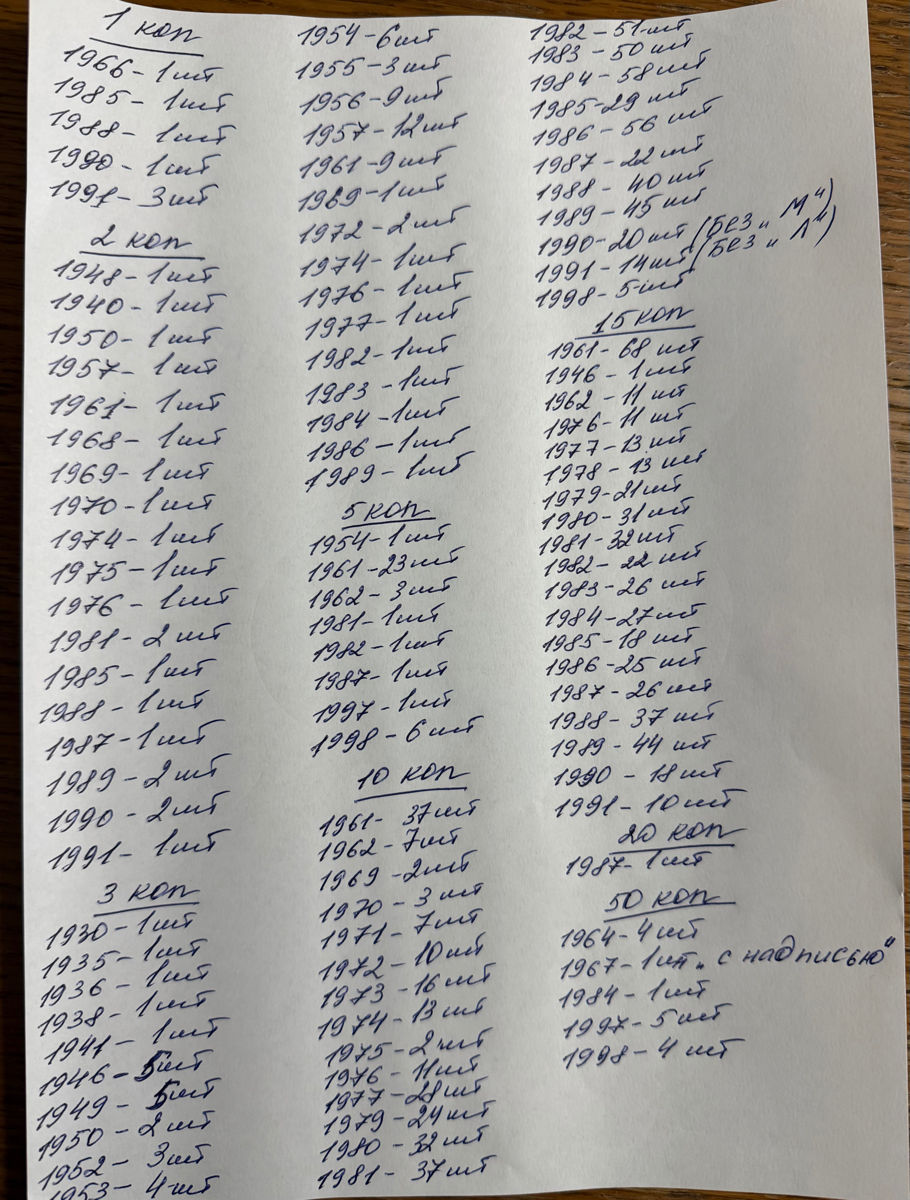 1 коп
1966-1шт
1985-1шт
1988-1шт
1990-1шт
1991-3шт
2 коп
1948-1шт
1940-1шт
1950-1шт
1957-1шт
1961-1шт
1968-1шт
1969-1шт
1970-1шт
1974-1шт
1975-1шт
1976-1шт
1981-2шт
1985-1шт
1988-1шт
1987-1шт
1989-2шт
1990-2шт
1991-1шт
3 коп
1930-1шт
1935-1шт
1936-1шт
1938-1шт
1941-1шт
1946-5шт
1949-5шт
1950-2шт
1952-3шт
1953-4шт
1954-6шт
1955-3шт
1956-9шт
1957-12шт
1961-9шт
1969-1шт
1972-2шт
1974-1шт
1976-1шт
1977-1шт
1982-1шт
1983-1шт
1984-1шт
1986-1шт
1989-1шт
5 коп
1954-1шт
1961-23шт
1962-3шт
1981-1шт
1982-1шт
1987-1шт
1997-1шт
1998-6шт
10 коп
1961-37шт
1962-7шт
1969-2шт
1970-3шт
1971-7шт
1972-10шт
1973-16шт
1974-13шт
1975-2шт
1976-11шт
1977-28шт
1979-24шт
1980-32шт
1981-37шт
1982-51шт
1983-50шт
1984-58шт
1985-29шт
1986-56шт
1987-22шт
1988-40шт
1989-45шт
1990-20шт (БЕЗ „М“)
1991-14шт (БЕЗ „Л“)
1998-5шт
15 коп
1961-68шт
1946-1шт
1962-11шт
1976-11шт
1977-13шт
1978-13шт
1979-21шт
1980-31шт
1981-32шт
1982-22шт
1983-26шт
1984-27шт
1985-18шт
1986-25шт
1987-26шт
1988-37шт
1989-44шт
1990-18шт
1991-10шт
20 коп
1987-1шт
50 коп
1964-4шт
1967-1шт „с надписью“
1984-1шт
1997-5шт
1998-4шт